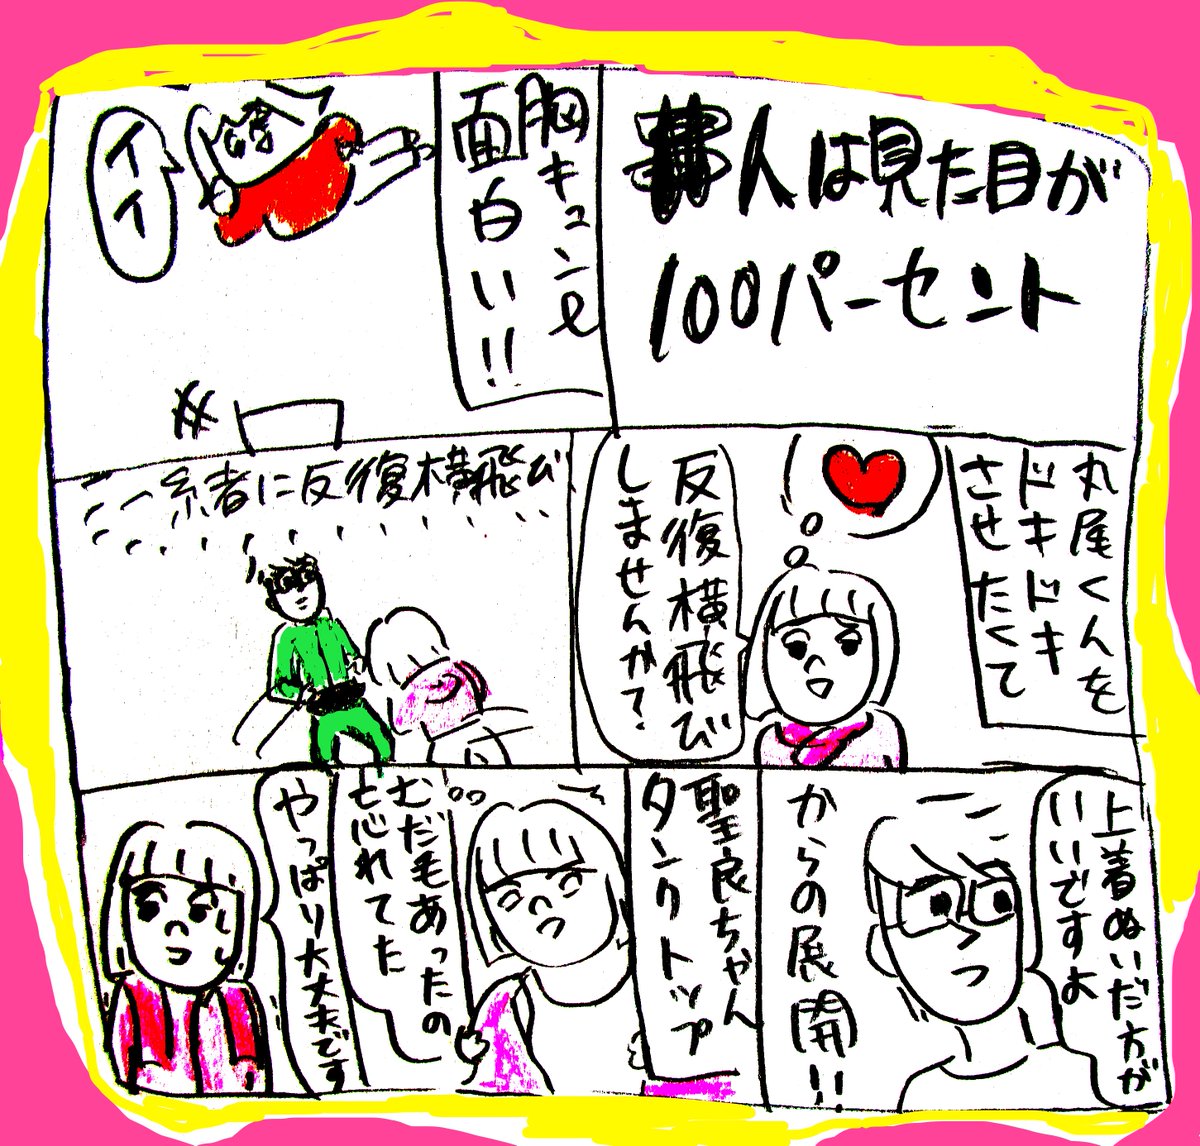 人は見た目が
100パーセント
胸キュンで
面白い!!
イイ
丸尾くんを
ドキドキ
させたくて
反復横飛び
しませんか?
一糸者に反復横飛び
上着ぬいだ方が
いいですよ
からの展開!!
聖良ちゃん
タンクトップ
むだ毛あったの
忘れてた
やっぱり大丈夫です